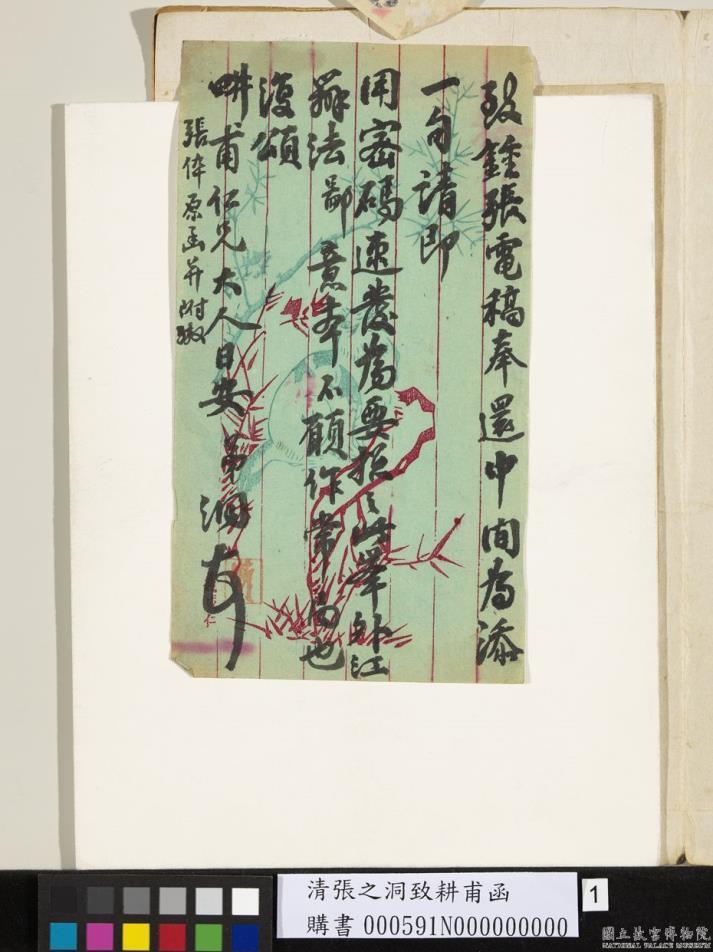 致鍾張電稿奉還中間為添
一句請即
用密碼速發為要拒之此舉外江
辦法鄙意本不願作常局也
復頌
畊甫仁兄大人日安 弟洞頓
張倅原函并附繳
清張之洞致耕甫函
購書 000591N000000000
1
國立故宮博物院
NATIONAL PALACE MUSEUM